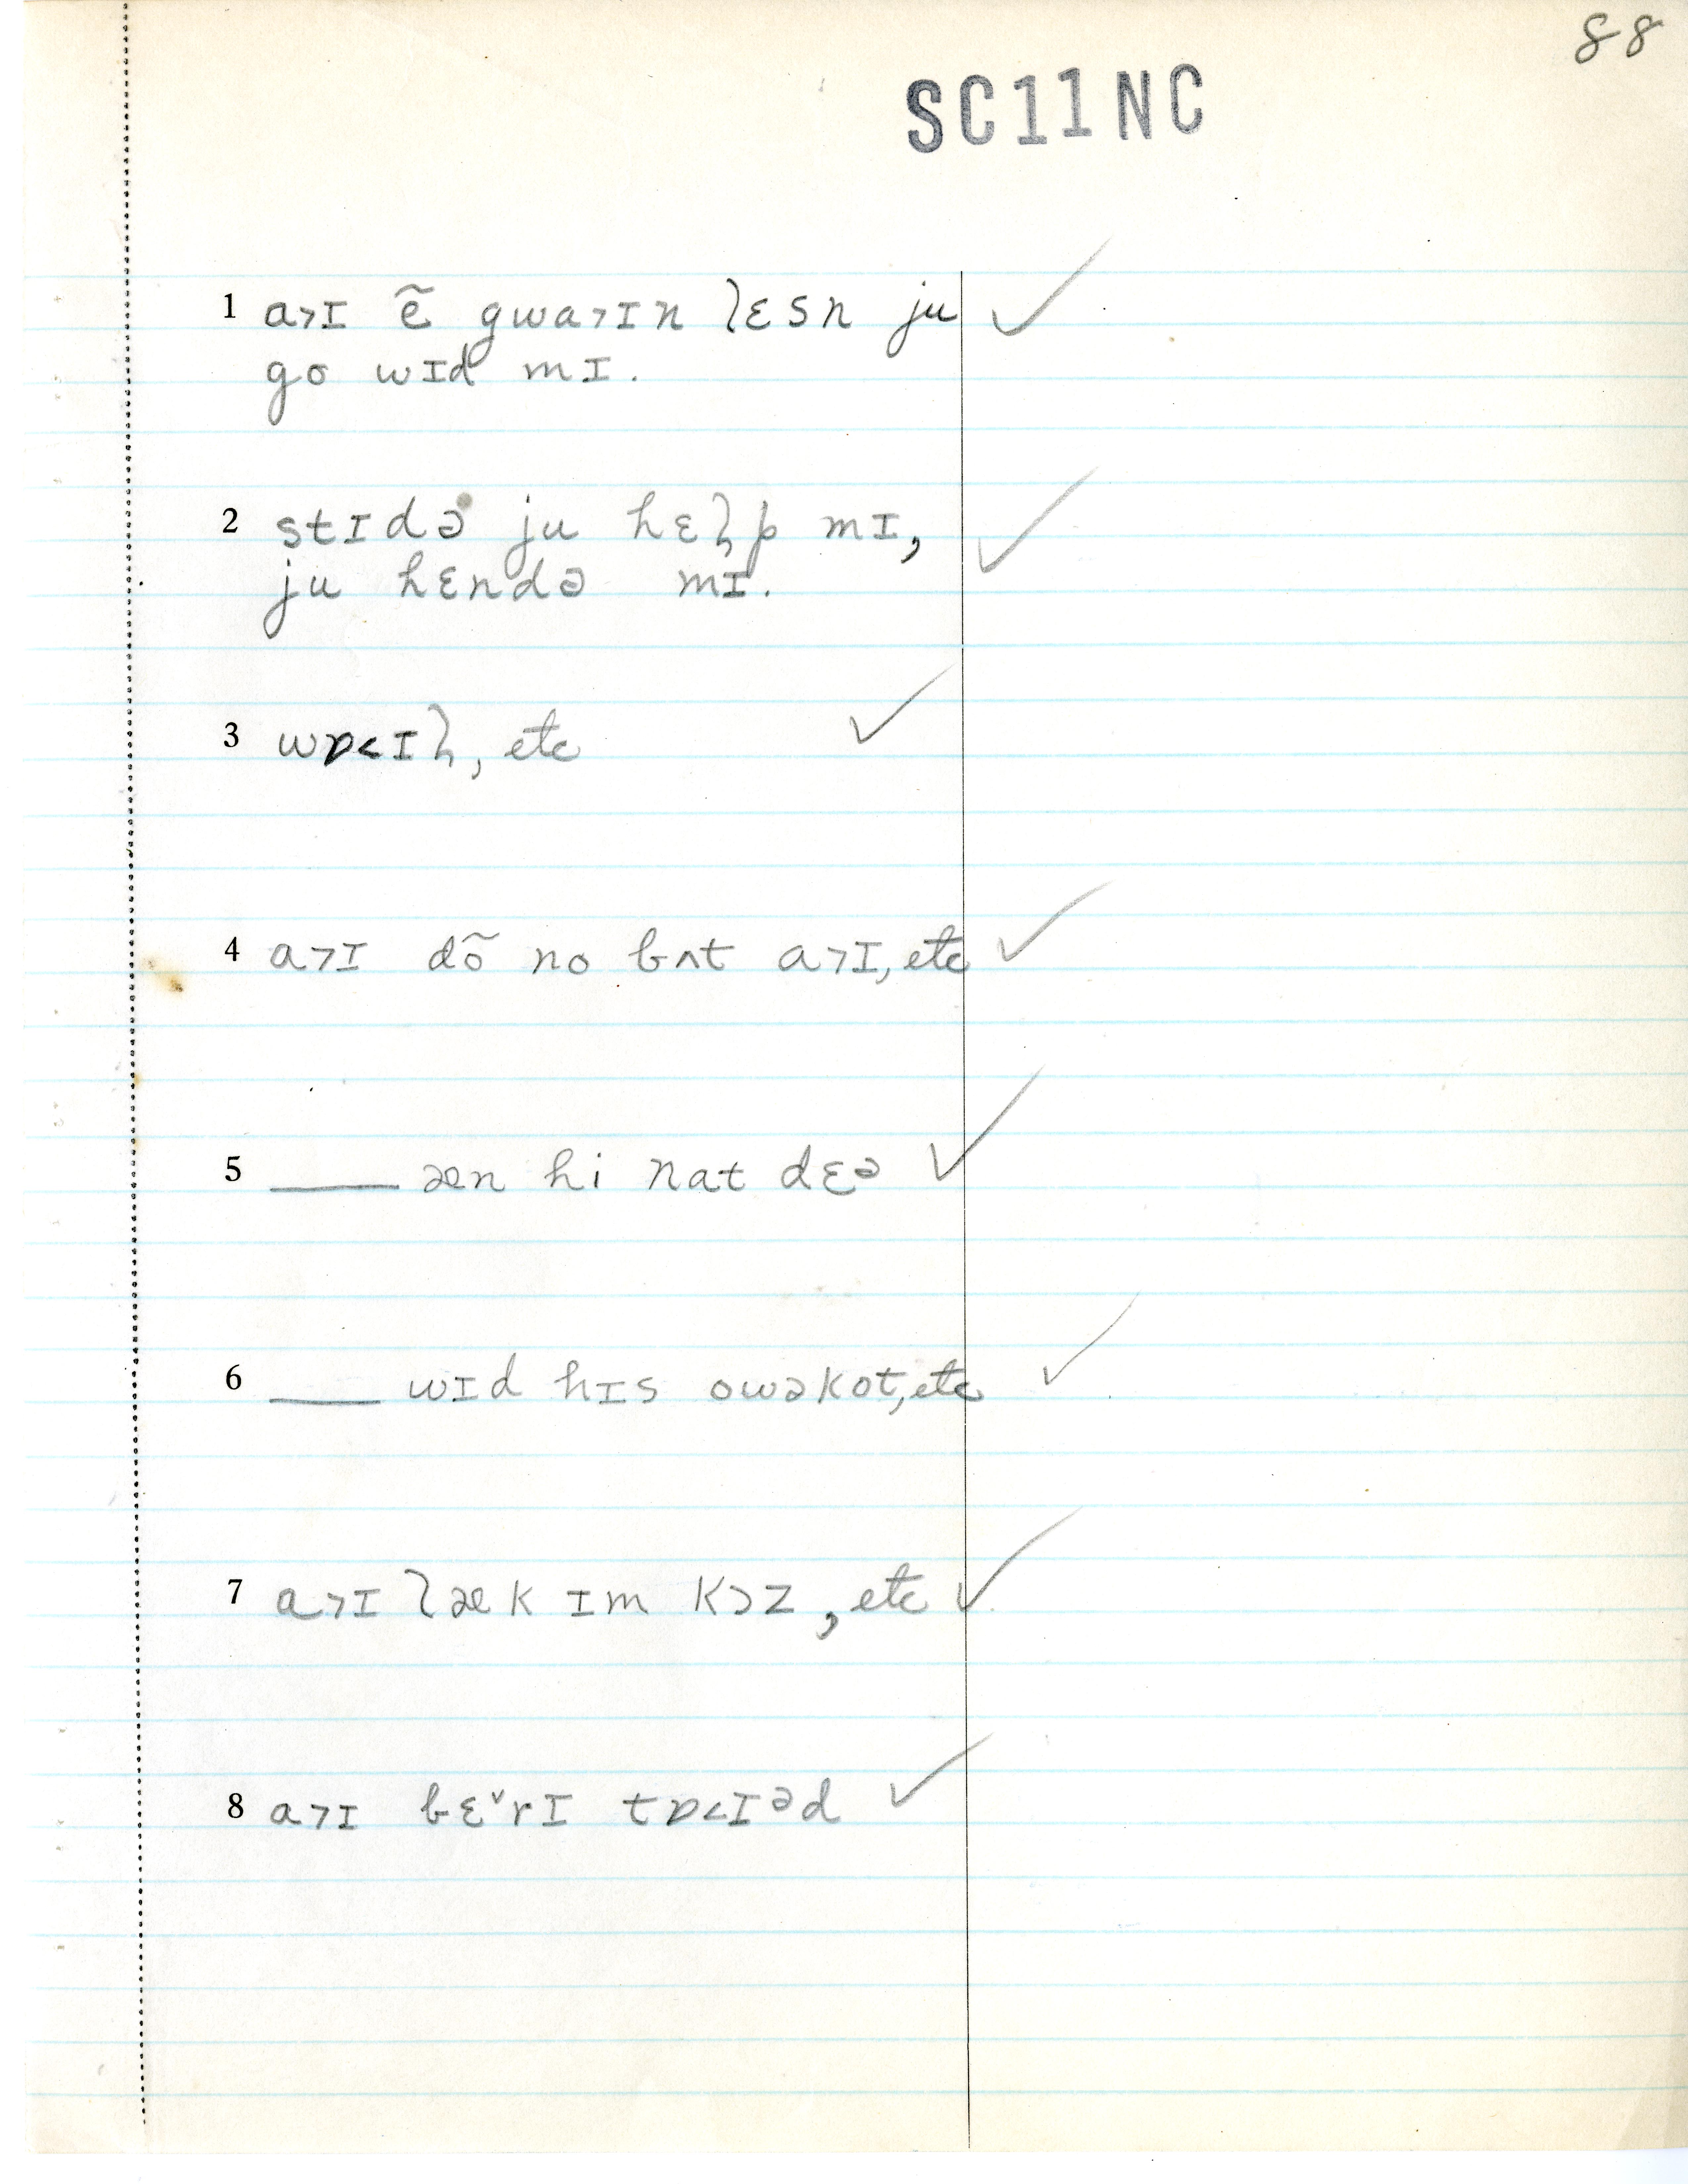 88
SC11NC
1 a>ɪ ẽ gwa>ɪn lɛsn ju ✓
go wɪd mɪ.
2 stɪdə ju hɛl̥p mɪ, ✓
ju hɛndə mɪ.
3 wɒ<ɪl, etc ✓
4 a>ɪ dõ no bʌt a>ɪ, etc ✓
5 ___ æn hi nat dɛə ✓
6 ___ wɪd hɪs owəkot, etc ✓
7 a>ɪ læk ɪm kɔz, etc ✓
8 a>ɪ bɛ˅rɪ tɒ<ɪəd ✓